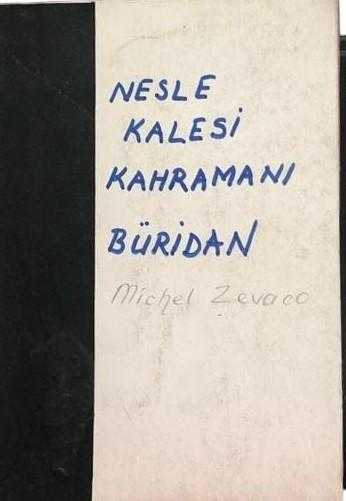 NESLE
KALESİ
KAHRAMANI
BÜRİDAN
Michel Zevaco